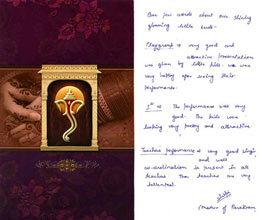 One few words about our shining
gleaming little buds-
Playgroup is very good and
attractive presentation
was given by little kids. We were
very happy after seeing their
performance.
The performance was very
good. The kids were
looking very pretty and attractive
Teachers performance is very good single
and well
co-ordination is present in all
teachers. The teachers are very
talented.
(Mother of